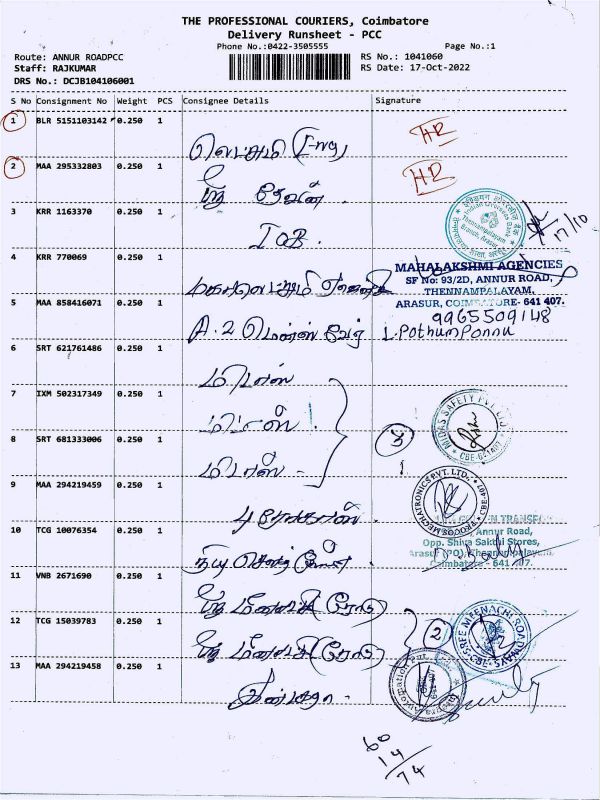 THE PROFESSIONAL COURIERS, Coimbatore
Delivery Runsheet - PCC
Phone No.:0422-3505555
Page No.:1
Route: ANNUR ROADPCC
RS No.: 1041060
Staff: RAJKUMAR
RS Date: 17-Oct-2022
DRS No.: DCJB104106001
S No Consignment No Weight PCS Consignee Details Signature
1 BLR 5151103142 0.250 1
லெட்சுமி (Eng)
HR
2 MAA 295332803 0.250 1
ஸ்ரீ தேவன்
HR
3 KRR 1163370 0.250 1
IOB.
Indian Overseas Bank
Thennampalayam
Branch, Arasur
17/10
4 KRR 770069 0.250 1
மகாலெட்சுமி
MAHALAKSHMI AGENCIES
SF No: 93/2D, ANNUR ROAD,
THENNAMPALAYAM,
ARASUR, COIMBATORE- 641 407.
5 MAA 858416071 0.250 1
A.2 மென்ஸ் வேர்
9965509148
L.Pothum Ponnu
6 SRT 621761486 0.250 1
மிடாஸ்
7 IXM 502317349 0.250 1
மிடாஸ்
MIDAS SAFETY PVT LTD
CBE-641407
8 SRT 681333006 0.250 1
மிடாஸ்
3
9 MAA 294219459 0.250 1
MECHATRONICS PVT. LTD.
10 TCG 10076354 0.250 1
Annur Road,
Opp. Shiva Sakthi Stores,
Arasur (PO), Thennampalayam,
Coimbatore - 641 407.
11 VNB 2671690 0.250 1
ஸ்ரீ மீனாட்சி (ரோடு)
12 TCG 15039783 0.250 1
ஸ்ரீ மீனாட்சி (ரோடு)
2
SREE MEENACHI ROADWAYS
13 MAA 294219458 0.250 1
Automation Pvt.
60
14
74